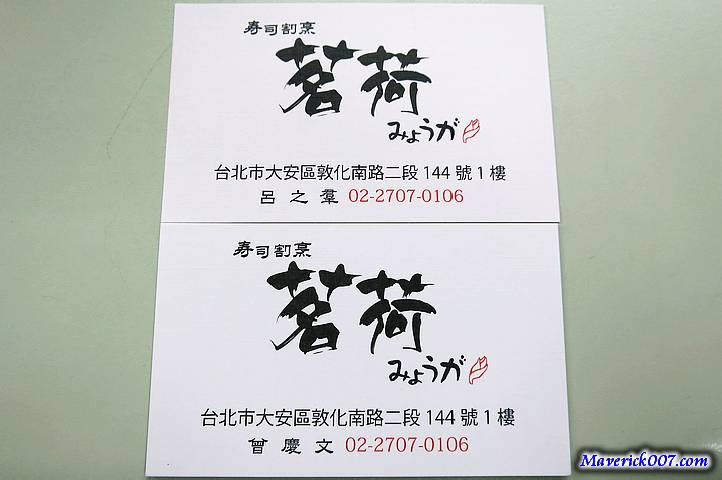 寿司割烹
茗荷
みょうが
台北市大安區敦化南路二段 144 號 1 樓
呂之羣 02-2707-0106
寿司割烹
茗荷
みょうが
台北市大安區敦化南路二段 144 號 1 樓
曾慶文 02-2707-0106
Maverick007.com